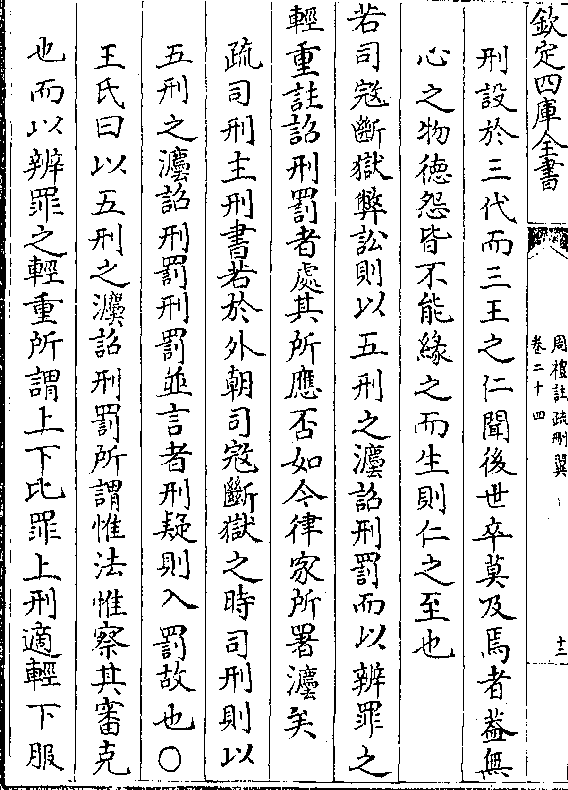 欽定四庫全書
周禮註疏刪翼
卷二十四
十三
刑設於三代而三王之仁聞後世卒莫及焉者葢無
心之物德怨皆不能緣之而生則仁之至也
若司寇斷獄弊訟則以五刑之灋詔刑罰而以辨罪之
輕重註詔刑罰者處其所應否如今律家所署灋矣
疏司刑主刑書若於外朝司寇斷獄之時司刑則以
五刑之灋詔刑罰刑罰並言者刑疑則入罰故也○
王氏曰以五刑之灋詔刑罰所謂惟法惟察其審克
也而以辨罪之輕重所謂上下比罪上刑適輕下服